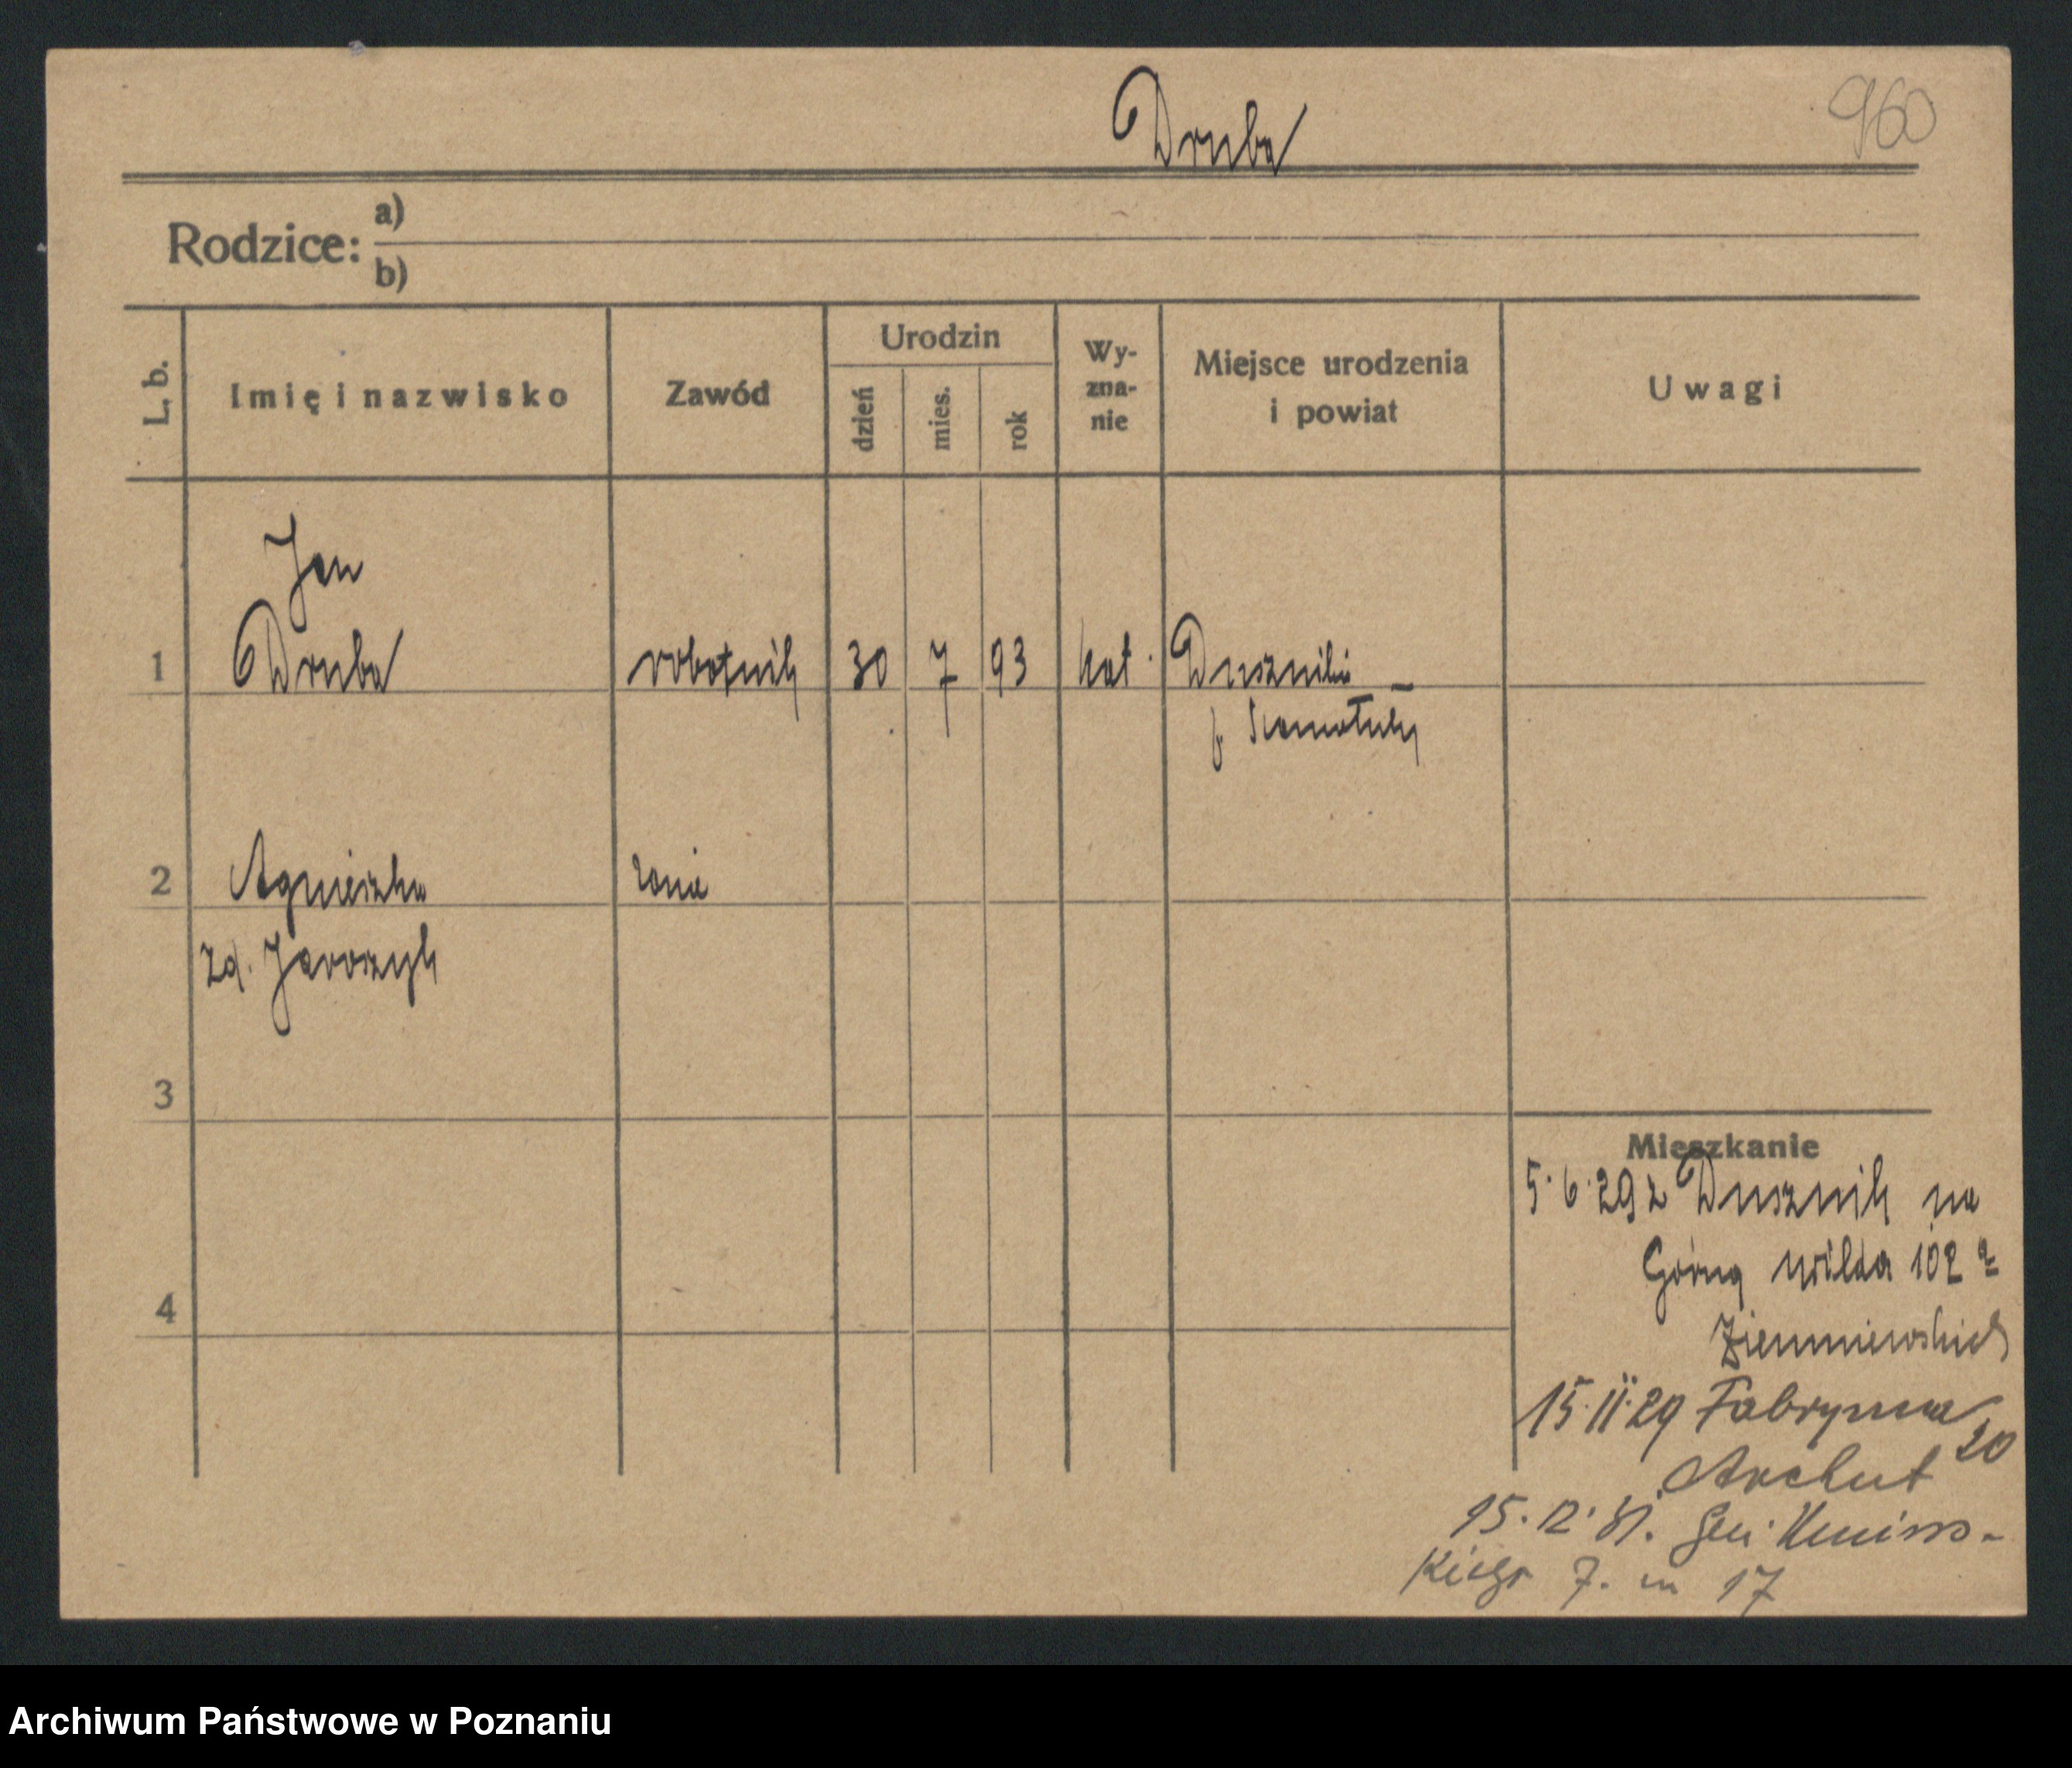 Druba
960
Rodzice: a)
b)
L. b.
Imię i nazwisko
Zawód
Urodzin
dzień
mies.
rok
Wy-
zna-
nie
Miejsce urodzenia
i powiat
Uwagi
Jan
1 Druba robotnik 30 7 93 kat. Duszniki –
p. Szamotuły
2 Agnieszka żona
zd. Jaroszyk
3
4
Mieszkanie
5.6.29 z Dusznik na
Górną wilda 102
15.11.29 Fabryczna
20
15.12.31. Gen.
kiego 7. m 17
Archiwum Państwowe w Poznaniu